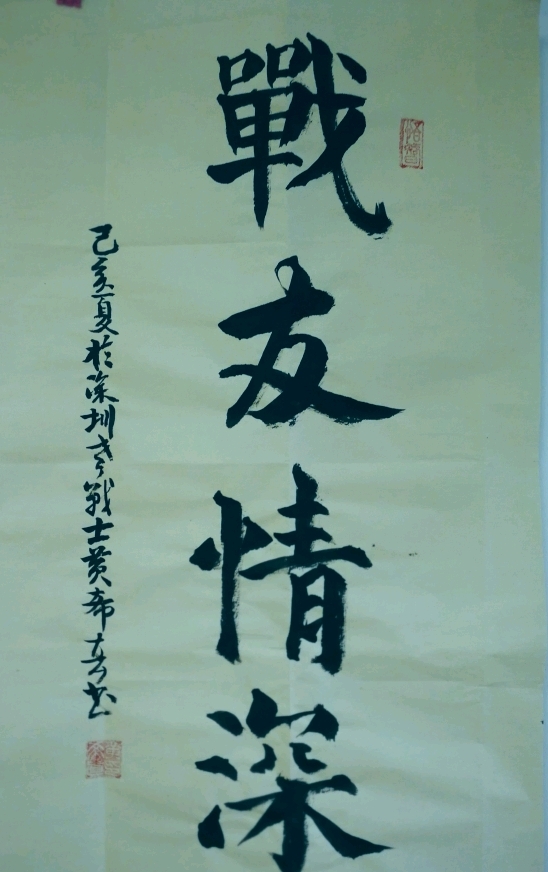 戰友情深
己亥夏於深圳老戰士黄希奇书